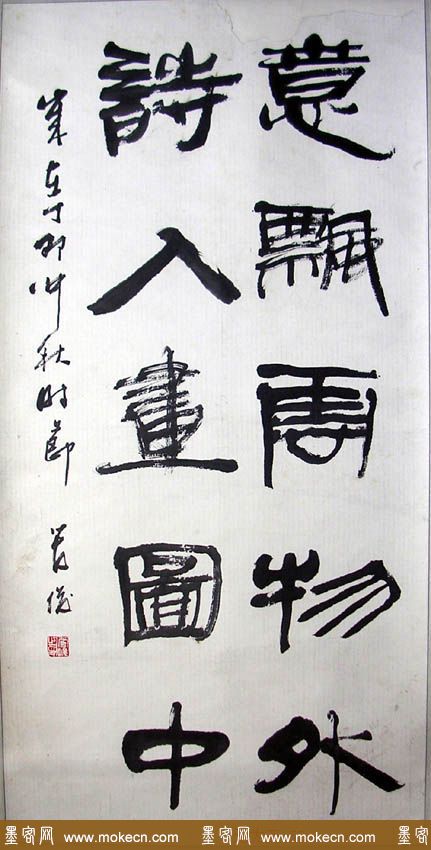 意飄雲物外
詩入畫圖中
歲在丁卯仲秋时節
墨客网 www.mokecn.com 墨客网 www.mokecn.com